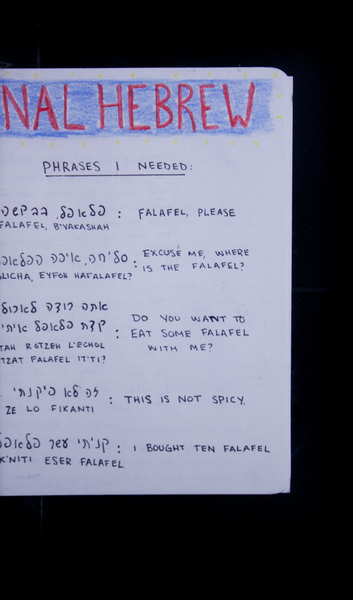 NAL HEBREW
PHRASES I NEEDED:
פלאפל, בבקשה : FALAFEL, PLEASE
FALAFEL, B'VAKASHAH
סליחה, איפה הפלאפל : EXCUSE ME, WHERE
LICHA, EYFOH HAFALAFEL? IS THE FALAFEL?
אתה רוצה לאכול
קצת פלאפל איתי : DO YOU WANT TO
TAH ROTZEH L'ECHOL EAT SOME FALAFEL
TZAT FALAFEL IT'TI? WITH ME?
זה לא פיקנתי : THIS IS NOT SPICY.
ZE LO FIKANTI
קניתי עשר פלאפל : I BOUGHT TEN FALAFEL
K'NITI ESER FALAFEL